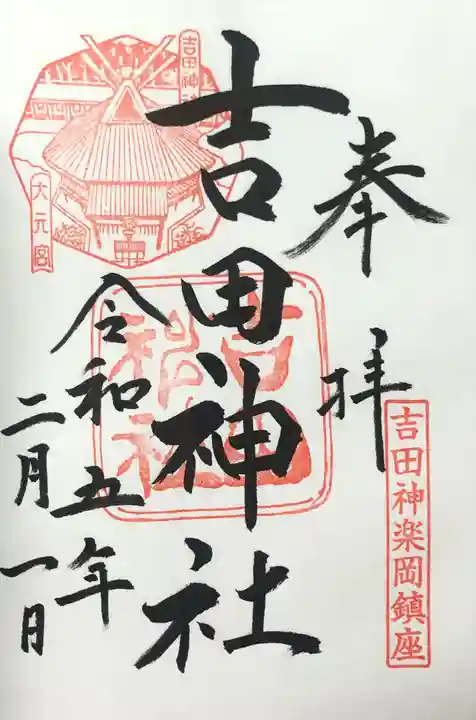 奉拝
吉田神楽岡鎮座
吉田神社
吉田神社
令和五年
二月一日
吉田神社
大元宮